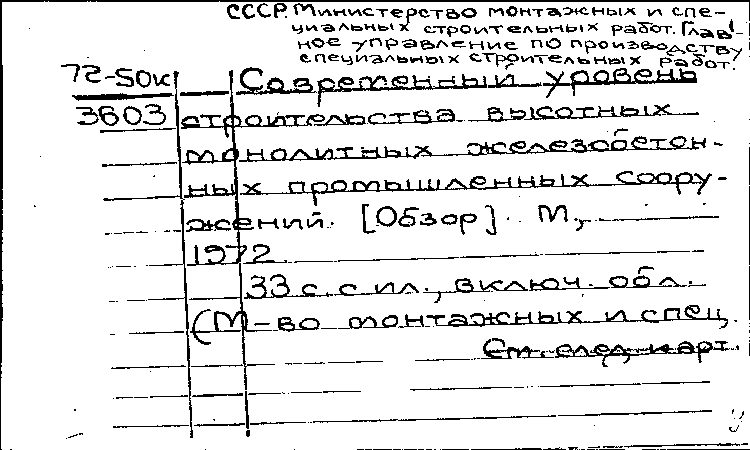 СССР. Министерство монтажных и спе-
циальных строительных работ. Глав-
ное управление по производству
специальных строительных работ.
72-50к
Современный уровень
3603 строительства высотных
монолитных железобетон-
ных промышленных соору-
жений. [Обзор]. М.,
1972
33 с. с ил., включ. обл.
(М-во монтажных и спец.
См. след. карт.